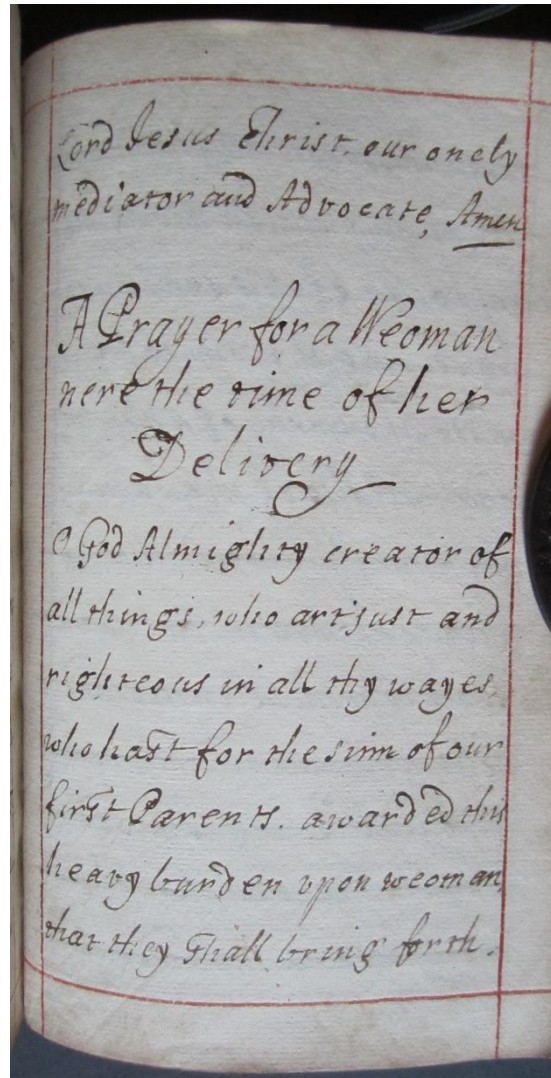 Lord Jesus Christ, our onely
mediator and Advocate, Amen
A Prayer for a Weoman
nere the time of her
Delivery
O God Almighty creator of
all things, who art just and
righteous in all thy wayes,
who hast for the sinn of our
first Parents. awarded this
heavy burden upon weoman,
that they shall bring forth.